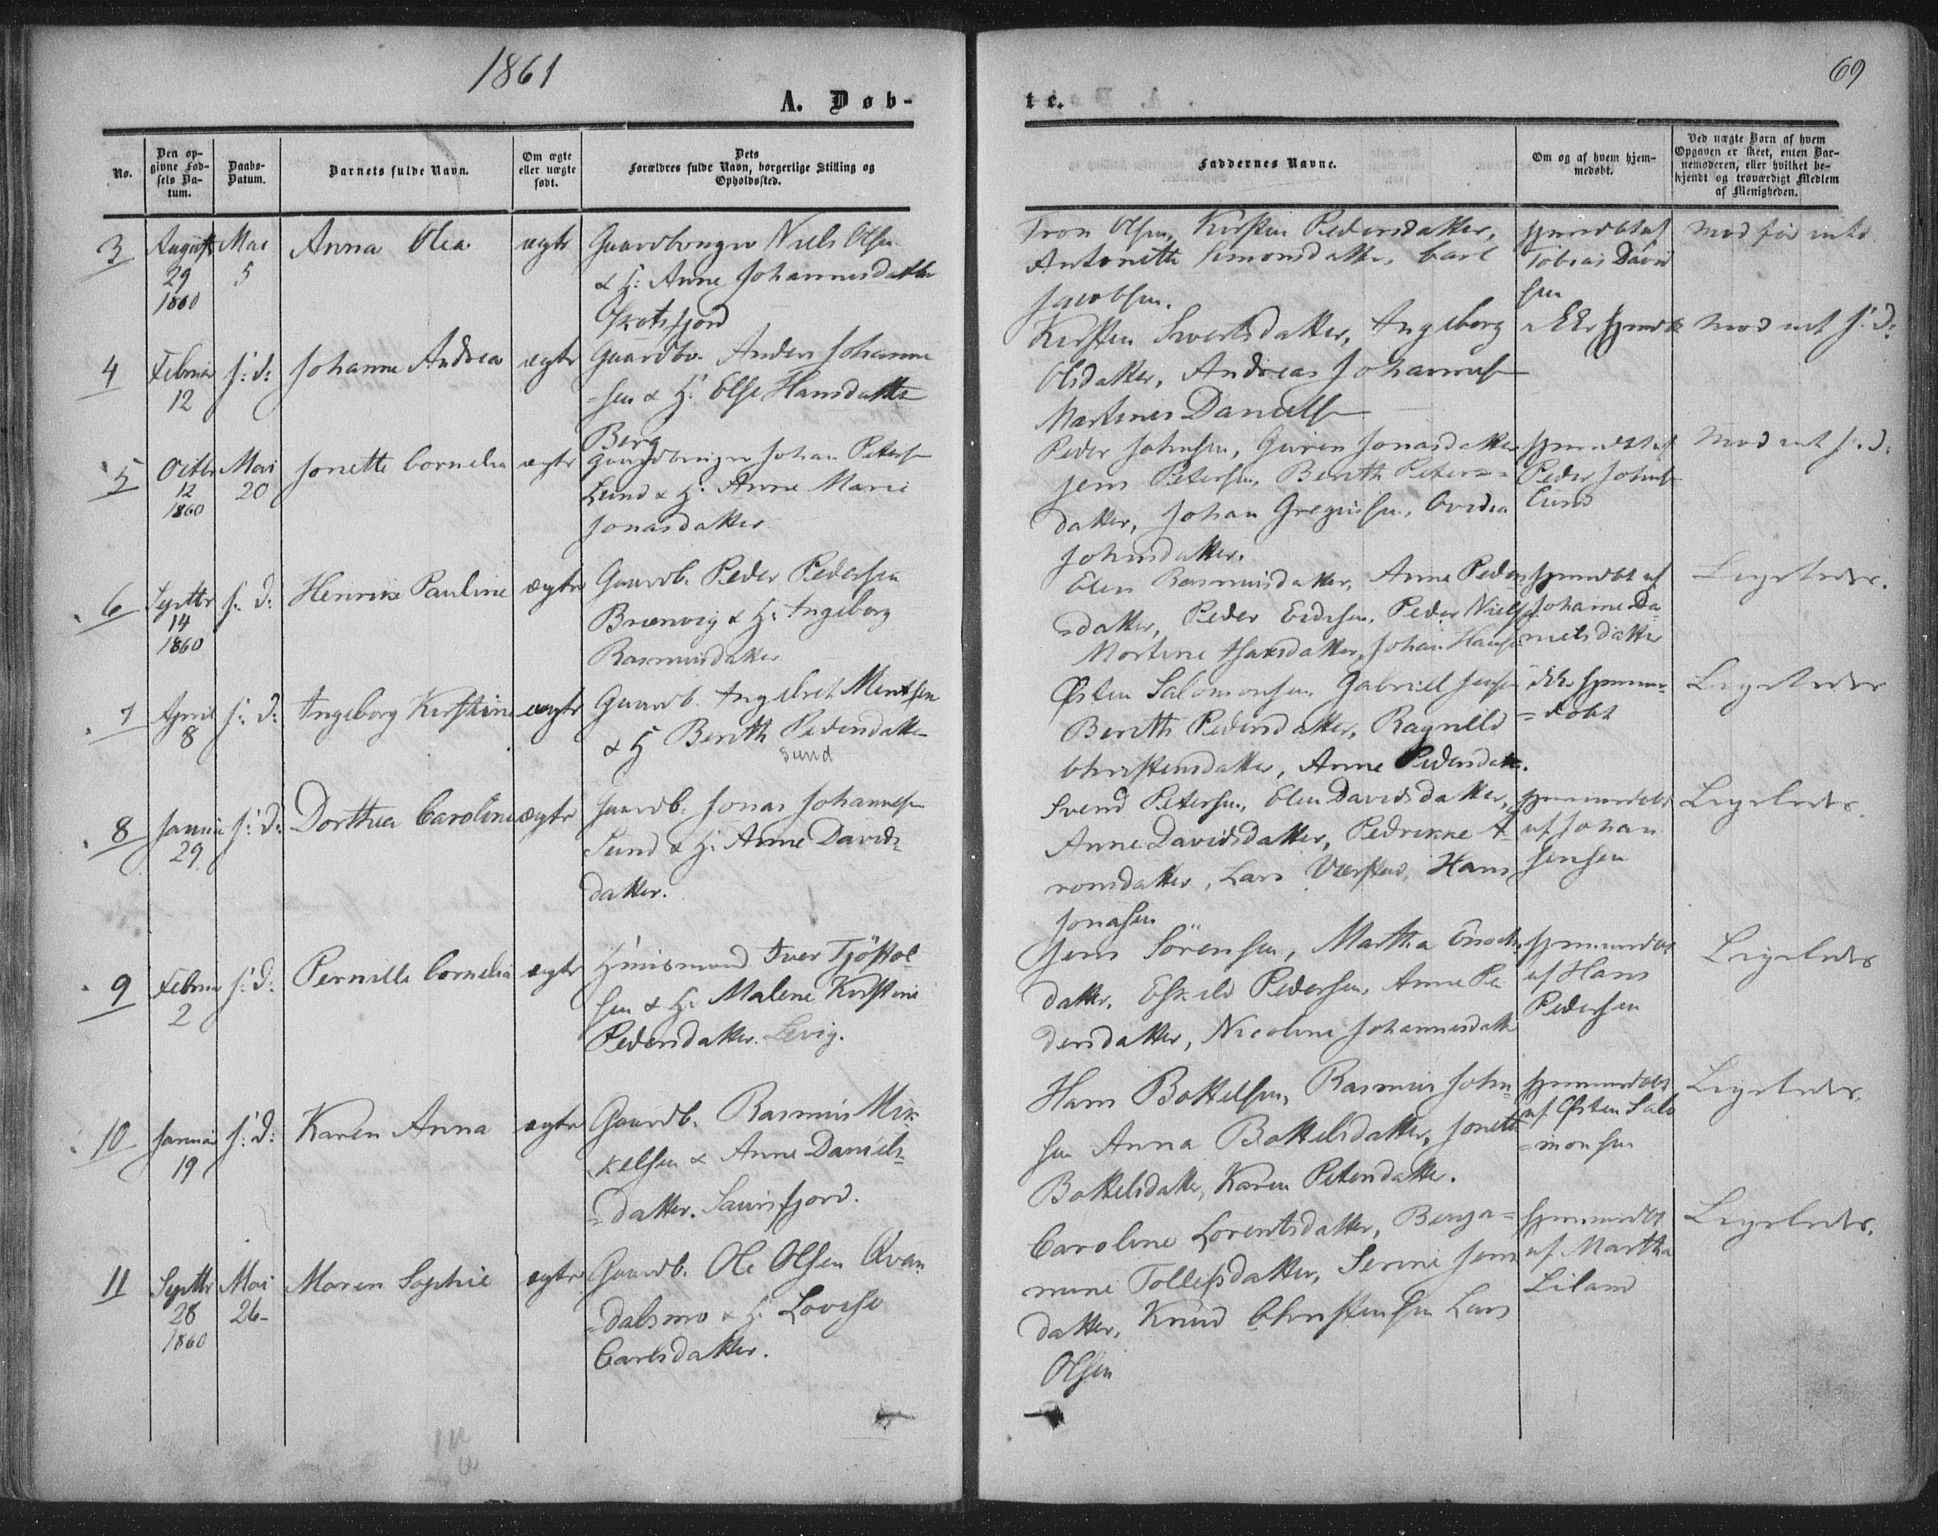 1861
69
A. Døb-
te.
No.
Den op-
givne Fød-
sels Da-
tum.
Daabs-
Datum.
Barnets fulde Navn.
Om ægte
eller uægte
født.
Dets
Forældres fulde Navn, borgerlige Stilling og
Opholdssted.
Faddernes Navne.
Om og af hvem hjem-
medøbt.
Ved uægte Børn af hvem
Opgaven er skeet, enten Bar-
nemoderen, eller hvilket be-
kjendt og troværdigt Medlem
af Menigheden.
3
August
29
1860
Mai
5
Anna Olea
ægte
Gaardbruger Niels Olsen
& H: Anne Johannesdatter
Tron Olsen, Kirsten Pedersdatter,
Antonette Simonsdatter, Carl
Jacobsen.
Hjemdøbt af
Tobias David
sen
4
Februar
12
s: d:
Johanne Andrea
ægte
Gaardbr. Anders Johanne
-sen & H: Else Hansdatter
Berg
Kirsten Sivertsdatter, Ingeborg
Olsdatter, Andreas Johannes
Martines Daniels
5
Octbr
12
1860
Mai
20
Jonette Cornelia
ægte
Gaardbruger Johan Peters
Lund & H: Anne Marie
Jonasdatter
Peder Johnsen, Guren Jonasdatter
Jens Petersen, Berith Peters-
datter, Johan Gregussen,
Johnsdatter.
Hjemdøbt af
Peder Johns
Lund
6
Septbr
14
1860
s: d:
Henrike Pauline
ægte
Gaardb. Peder Pedersen
& H: Ingeborg
Rasmusdatter
Elen Rasmusdatter, Anne Peder
-sdatter, Peder Peder Niels
Johan Hans
Hjemdøbt af
Johanne Da-
nielsdatter
Ligeledes.
7
April
8
s: d:
Ingeborg Kirstine
ægte
Gaardb. Ingebret Mentsen
& H Berith Pedersdatter
Sund
Østen Salomonsen, Gabriel Jensen
Berith Pedersdatter, Ragnild
Christensdatter, Anne Pedersdatter.
Ikke hjemme-
=døbt
Ligeledes
8
Januar
29
s: d:
Dorthea Caroline
ægte
Gaardb. Jonas Johannesen
Sund & H: Anne Davids-
datter.
Svend Petersen, Elen Davidsdatter,
Anne Davidsdatter, Pedrikke A-
ronsdatter, Lars Hans
Jonasen
Hjemmedøbt
af Johan
Jensen
Ligeledes.
9
Februar
2
s: d:
Pernille Cornelia
ægte
Huusmand Iver Tjöstol
sen & H: Malene Kirstine
Pedersdatter. Levig.
Jens Sörensen, Martha Enochs
datter, Eskild Pedersen, Anne Pe
dersdatter, Nicoline Johannesdatt
Hjemmedøbt
af Hans
Pedersen
Ligeledes
10
Januar
19
s: d:
Karen Anna
ægte
Gaardb. Rasmus Mik-
kelsen & Anne Daniels-
=datter. Saursfjord.
Hans Bottelsen, Rasmus John-
sen Anna Bottelsdatter, Jonette
Bottelsdatter, Karen Petersdatter.
Hjemmedøbt
af Østen Salo
=monsen
Ligeledes.
11
Septbr
28
1860
Mai
26-
Maren Sophie
ægte
Gaardb. Ole Olsen Qvan
-dalsmo & H: Lovise
Carlsdatter.
Caroline Lorentsdatter, Benja=
mine Tollefsdatter, Serine Jens
datter, Knud Christensen Lars
Olsen
Hjemmedøbt
af Martha
Leland
Ligeledes.